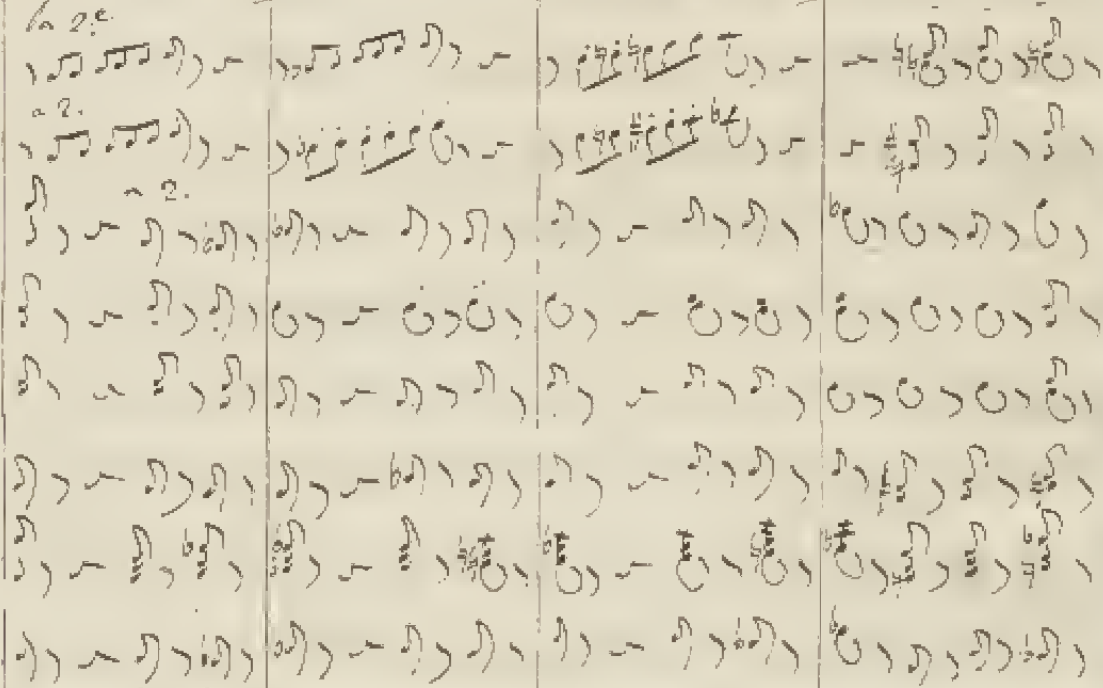 a 2.
a 2.
a 2.